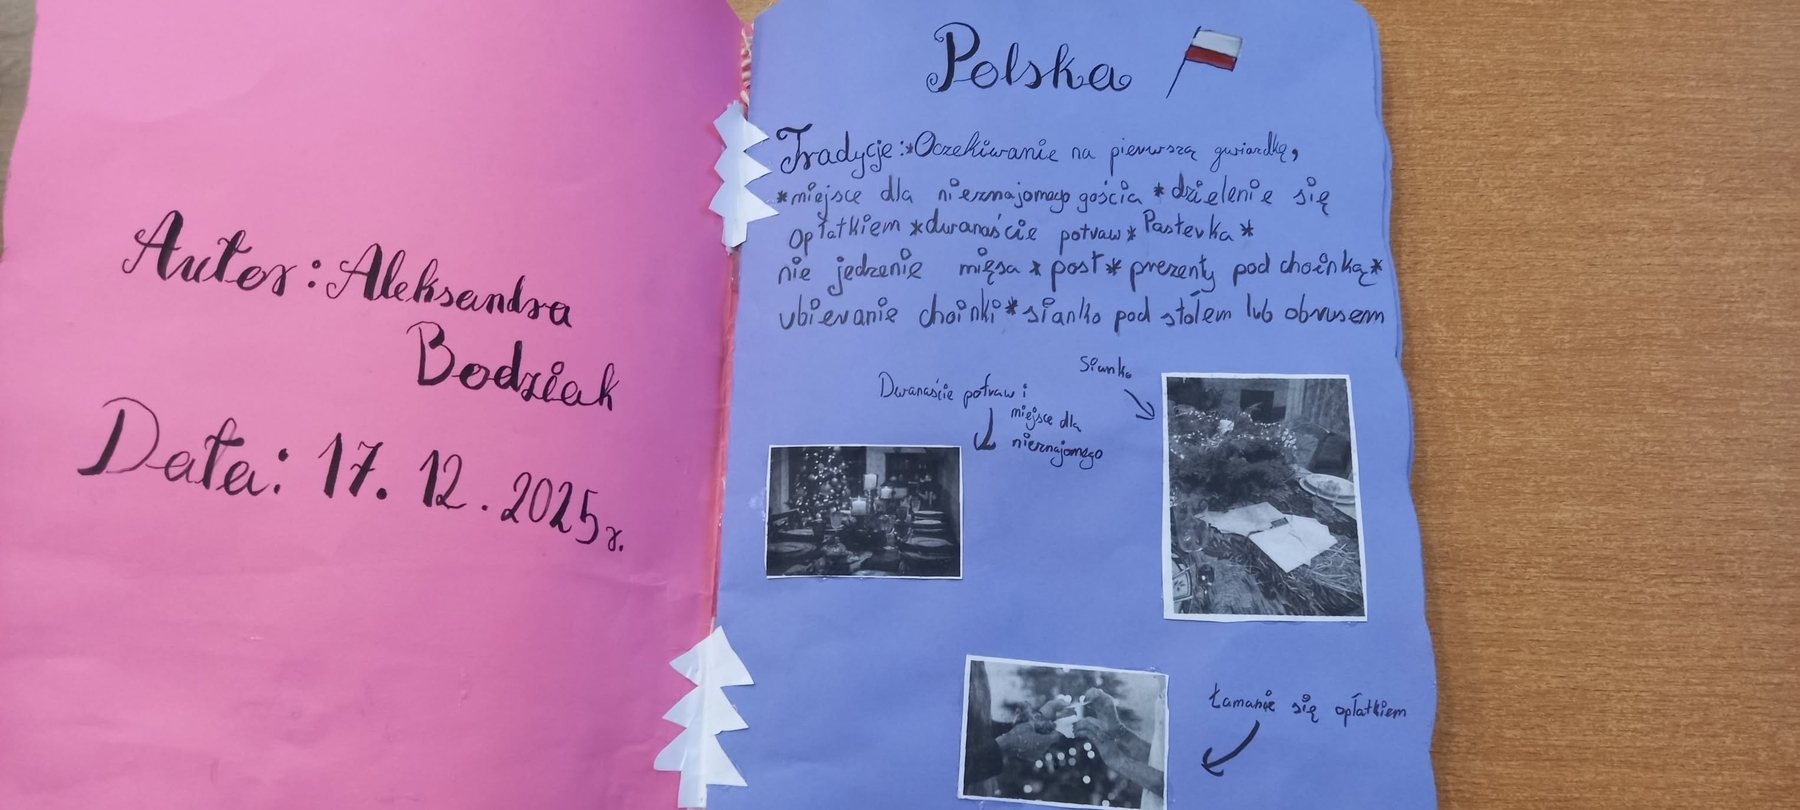 Autor: Aleksandra
Bodziak
Data: 17.12.2025r.
Polska
Tradycje: *Oczekiwanie na pierwszą gwiazdkę,
*miejsce dla nieznajomego gościa *dzielenie się
opłatkiem *dwanaście potraw* Pasterka*
nie jedzenie mięsa * post* prezenty pod choinką*
ubieranie choinki* sianko pod stołem lub obrusem
Sianko
Dwanaście potraw i
miejsce dla
nieznajomego
Łamanie się opłatkiem